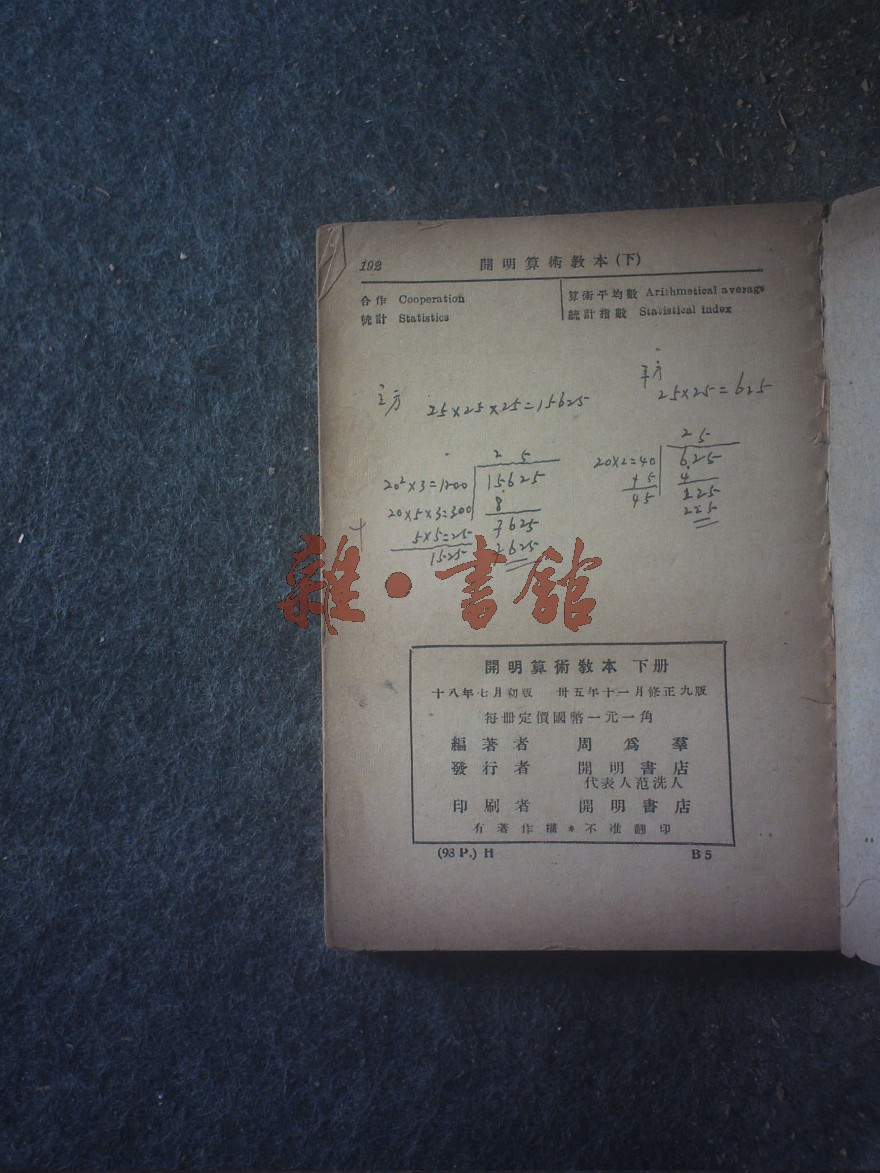 192 開明算術教本(下)
合作 Cooperation
統計 Statistics
算術平均數 Arithmetical average
統計指數 Statistical index
立方 25×25×25=15625
平方
25×25=625
2 5
20²×3=1200 15625
20×5×3=300 8
5×5=25 7625
+ 1525 7625
2 5
20×2=40 625
+5 4
45 225
225
雜·書館
開明算術教本 下册
十八年七月初版 卅五年十一月修正九版
每册定價國幣一元一角
編著者 周為羣
發行者 開明書店
代表人范洗人
印刷者 開明書店
有著作權*不准翻印
(98 P.) H B5